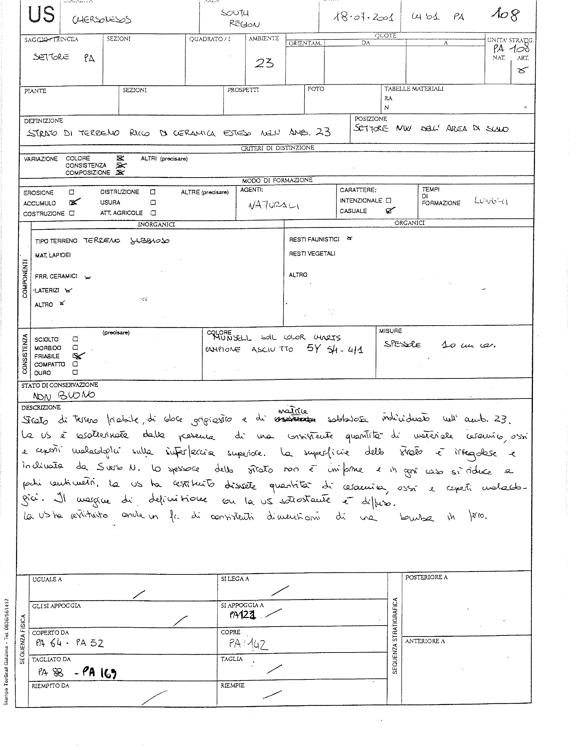 US
CHERSONESOS
SOUTH REGION
18-07-2001
PA
108
SAGGIO/TRINCEA
SETTORE PA
SEZIONI
QUADRATO / I
AMBIENTE
23
QUOTE
ORIENTAM.
DA
A
UNITA' STRATIG.
PA 108
NAT.
ART.
PIANTE
SEZIONI
PROSPETTI
FOTO
TABELLE MATERIALI
RA
N
DEFINIZIONE
STRATO DI TERRENO RICCO DI CERAMICA ESTESO NELL'AMB. 23
POSIZIONE
SETTORE NW DELL'AREA DI SCAVO
CRITERI DI DISTINZIONE
VARIAZIONE COLORE ALTRI (precisare)
CONSISTENZA
COMPOSIZIONE
MODO DI FORMAZIONE
EROSIONE DISTRUZIONE ALTRE (precisare)
ACCUMULO USURA
COSTRUZIONE ATT. AGRICOLE
AGENTI:
NATURALI
CARATTERE:
INTENZIONALE
CASUALE
TEMPI
DI
FORMAZIONE LUNGHI
COMPONENTI
INORGANICI
TIPO TERRENO TERRENO SABBIOSO
MAT. LAPIDEI
FRR. CERAMICI
LATERIZI
ALTRO
ORGANICI
RESTI FAUNISTICI
RESTI VEGETALI
ALTRO
CONSISTENZA
(precisare)
SCIOLTO
MORBIDO
FRIABILE
COMPATTO
DURO
COLORE
MUNSELL SOIL COLOR CHARTS
CAMPIONE ASCIUTTO 5Y 5/1 - 4/1
MISURE
SPESSORE 10 cm ca.
STATO DI CONSERVAZIONE
NON BUONO
DESCRIZIONE
Strato di terreno friabile, di colore grigiastro e di matrice sabbiosa individuato nell'amb. 23.
La US è caratterizzata dalla presenza di una consistente quantità di materiale ceramico, ossi
e reperti malacologici sulla interfaccia superiore. La superficie dello strato è irregolare e
inclinata da S verso N. Lo spessore dello strato non è uniforme e in ogni caso si riduce a
pochi centimetri. La US ha restituito discrete quantità di ceramica, ossi e reperti malacolo-
gici. Il margine di definizione con la US sottostante è diffuso.
La US ha restituito anche un fr. di consistenti dimensioni di una bomba in ferro.
SEQUENZA FISICA
UGUALE A
SI LEGA A
GLI SI APPOGGIA
SI APPOGGIA A
PA121
COPERTO DA
PA 64 - PA 52
COPRE
PA 142
TAGLIATO DA
PA 88 - PA 169
TAGLIA
RIEMPITO DA
RIEMPIE
SEQUENZA STRATIGRAFICA
POSTERIORE A
ANTERIORE A